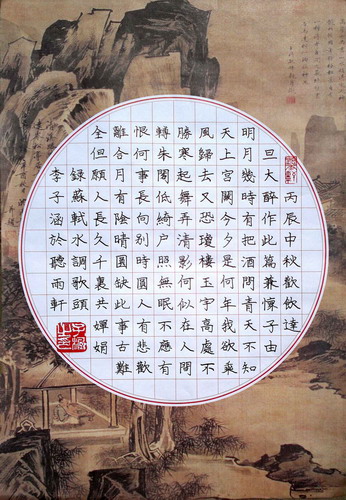 丙辰中秋歡飲達
旦大醉作此篇兼懷子由
明月幾時有把酒問青天不知
天上宮闕今夕是何年我欲乘
風歸去又恐瓊樓玉宇高處不
勝寒起舞弄清影何似在人間
轉朱閣低綺户照無眠不應有
恨何事長向別時圓人有悲歡
離合月有陰晴圓缺此事古難
全但願人長久千裏共嬋娟
録蘇軾水調歌頭
李子涵於聽雨軒
子涵之印